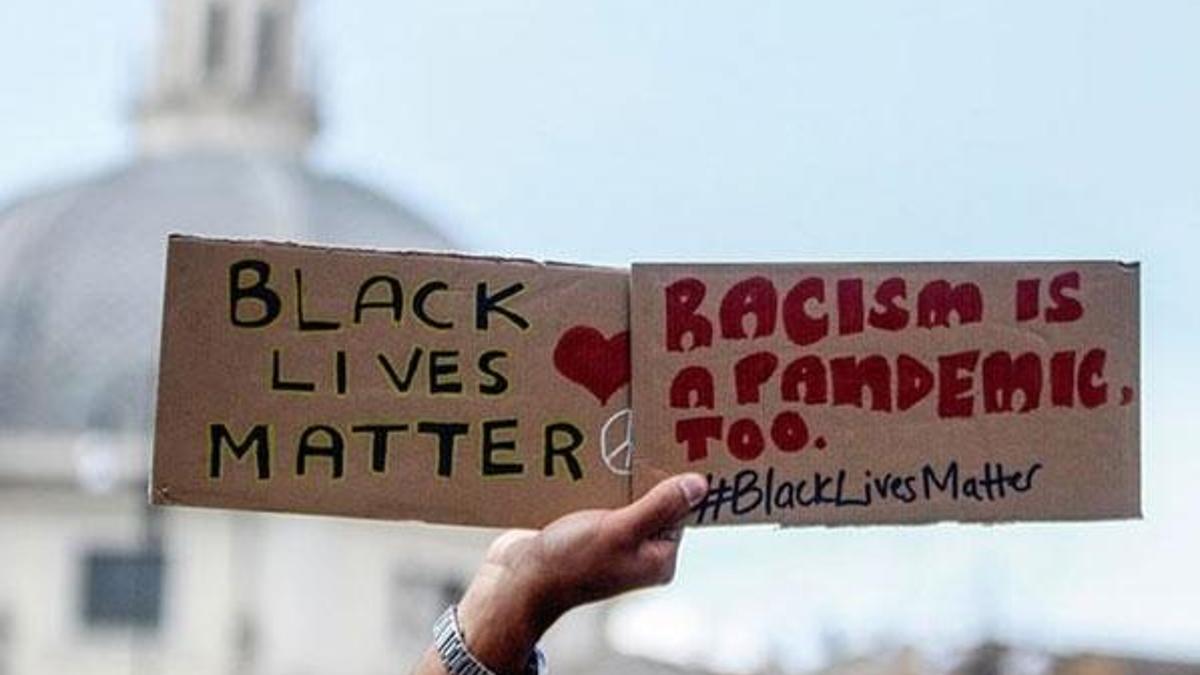 BLACK
LIVES
MATTER
RACISM IS
A PANDEMIC,
TOO.
#BlackLivesMatter